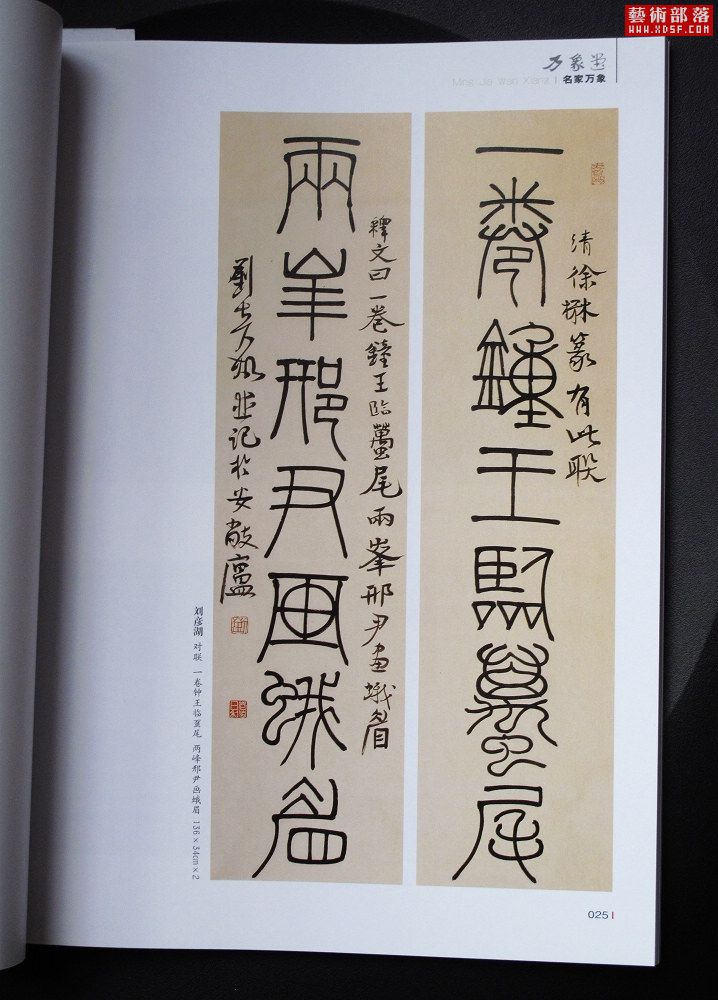 藝術部落
www.XDSF.com
万象堂
Ming Jia Wan Xiang | 名家万象
一卷鐘王臨蠆尾
清徐楙篆有此聯
兩峯邢尹画蛾眉
釋文曰一卷鐘王臨蠆尾兩峯邢尹画蛾眉
並記於安敞廬
刘彦湖 对联 一卷钟王临虿尾 两峰邢尹画蛾眉 136×34cm×2
025